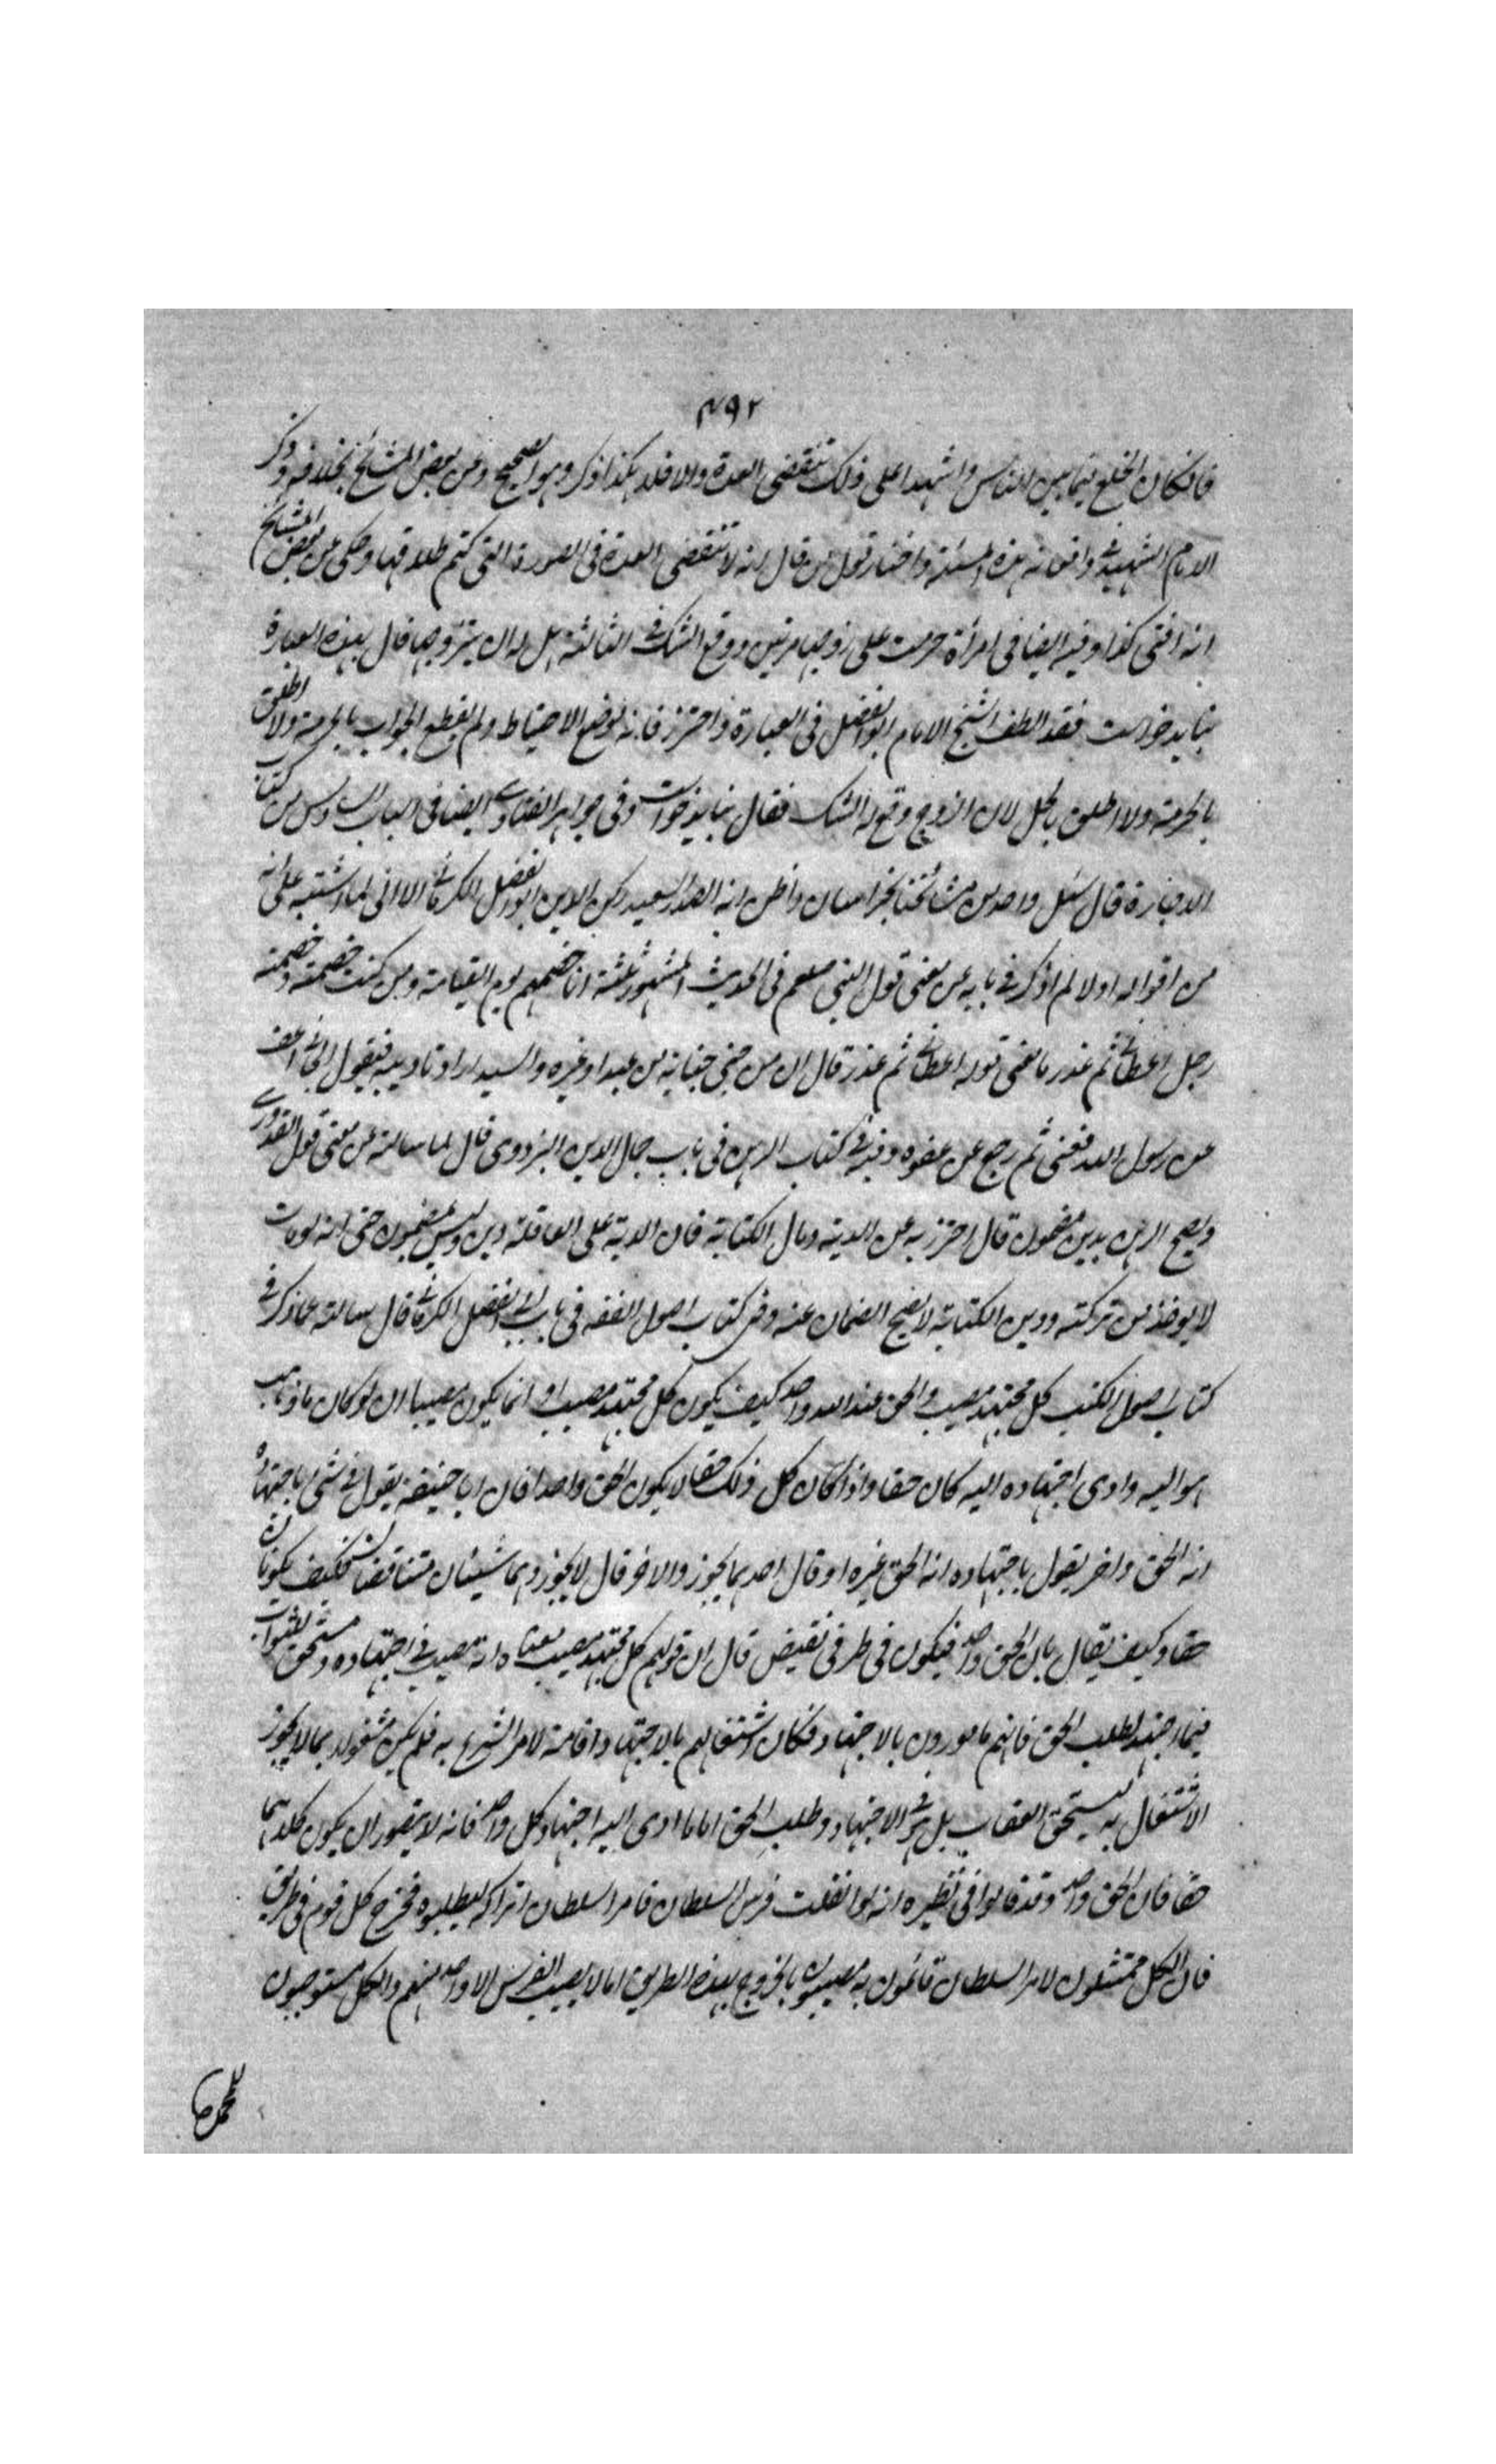 ٤٩٢
فان كان الخلع فيما بين الناس واشهدا على ذلك تنقضى العدة والا فلا هكذا ذكر وهو الصحيح وعن بعض المشائخ بخلافه وذكر
الامام الشهيد هذه المسئلة واختار قول من قال انه لا تنقضى العدة فى الصورة التى كتم طلاقها وحكى عن بعض المشائخ
انه افتى كذا وفيه ايضا فى امرأة حرمت على زوجها مرتين ووقع الشك فى الثالثة هل له ان يتزوجها قال بهذه العبارة
نبايد خواست فقد الطف الشيخ الامام ابو الفضل فى العبارة واحترز فانه لوضع الاحتياط ولم يقطع الجواب بالحرمة ولا اطلق
بالحرمة ولا اطلق بالحل لان الزوج وقع له الشك فقال نبايد خواست وفى جواهر الفتاوى ايضا فى الباب السادس من كتاب
الاجارة قال سئل واحد من مشائخنا بخراسان واظن انه الصدر السعيد ركن الدين ابو الفضل الكرمانى الا انى لما اشتبه على انه
من اقواله اولا لم اذكر فى بابه عن معنى قول النبى صلعم فى الحديث المشهور ثلثة انا خصمهم يوم القيامة ومن كنت خصمه خصمته
رجل اعطى ثم غدر ما معنى قوله اعطى ثم غدر قال ان من جنى جناية من عبد او غيره والسيد اراد تاديبه فيقول الجانى اعف
عن رسول الله فعفى ثم رجع عن عفوه وفيه فى كتاب الرهن فى باب جمال الدين البزدوى قال لما سالته عن معنى قول القدورى
ويصح الرهن بدين مضمون قال احترز به عن الدية ومال الكتابة فان الدية على العاقلة دين وليس بمضمون حتى انه لو مات
لا يوخذ من تركته ودين الكتابة لا يصح الضمان عنه وفى كتاب اصول الفقه فى باب ابى الفضل الكرمانى قال سالته عما ذكر فى
كتاب اصول الكتب كل مجتهد مصيب والحق عند الله واحد كيف يكون كل مجتهد مصيبا وانما يكون مصيبا ان لو كان ما ذهب
هو اليه وادى اجتهاده اليه كان حقا واذا كان كل ذلك حقا لا يكون الحق واحدا فان ابا حنيفة يقول فى شئ باجتهاده
انه الحق واخر يقول باجتهاده انه الحق غيره او قال احدهما يجوز والاخر قال لا يجوز وهما شيئان متناقضان فكيف يكونان
حقا وكيف يقال بان الحق واحد فيكون فى طرفى نقيض قال ان قولهم كل مجتهد مصيب معناه انه مصيب فى اجتهاده ومستحق للثواب
فيما اجتهد لطلب الحق فانهم مامورون بالاجتهاد فكان اشتغالهم بالاجتهاد اقامة لامر الشرع به فلم يكن مشغولا بما لا يجوز
الاشتغال به ليستحق العقاب بل هو فى الاجتهاد وطلب الحق اما ما ادى اليه اجتهاد كل واحد فانه لا يتصور ان يكون كلاهما
حقا فان الحق واحد وقد قالوا فى نظيره انه لو انفلت فرس السلطان فامر السلطان اتراكه ليطلبوه فخرج كل قوم فى طريق
فان الكل ممتثلون لامر السلطان قائمون به مصيبون بالخروج بهذه الطريق اما لا يصيب الفرس الا واحد منهم والكل مستوجبون
للمحمدة